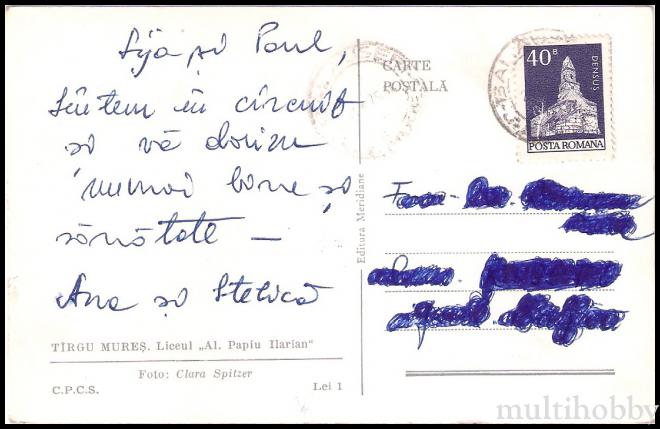 și Paul,
Sîntem în circuit
și vă dorim
numai bine și
sănătate —
Ana și Stelică
TÎRGU MUREȘ. Liceul „Al. Papiu Ilarian"
Foto: Clara Spitzer
C.P.C.S.
Lei 1
Editura Meridiane
CARTE
POȘTALĂ
40 B
DENSUȘ
POSTA ROMANA
multihobby